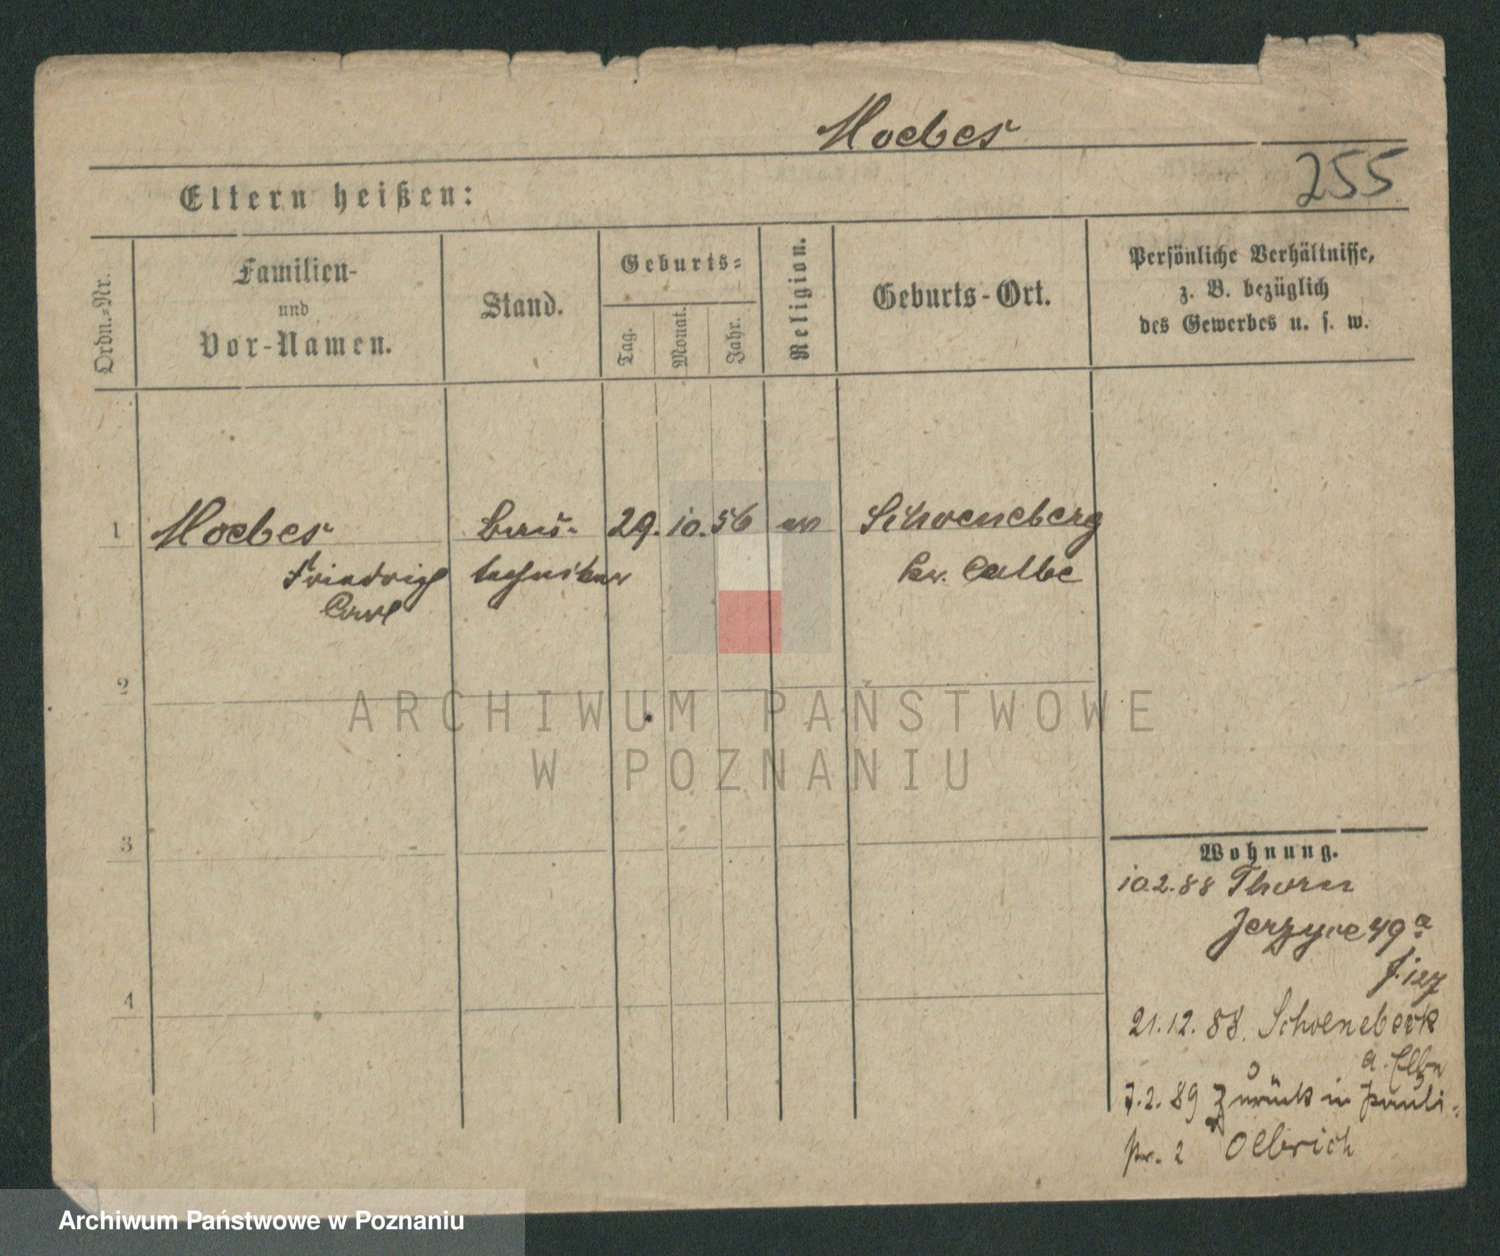 Moebes
255
Eltern heißen:
Ordn.-Nr.
Familien-
und
Vor-Namen.
Stand.
Geburts-
Tag.
Monat.
Jahr.
Religion.
Geburts-Ort.
Persönliche Verhältnisse,
z. B. bezüglich
des Gewerbes u. s. w.
1 Moebes Bau- 29. 10. 56 ev Schoeneberg
Friedrich techniker Kr. Calbe
Carl
2
3
4
Wohnung.
10.2.88 Thorn
Jerzyce 49a
J. 127
21.12.88. Schoenebeck
a. Elbe
7.2.89 Zurück in Pauli-
str. 2 Olbrich
ARCHIWUM PAŃSTWOWE
W POZNANIU
Archiwum Państwowe w Poznaniu